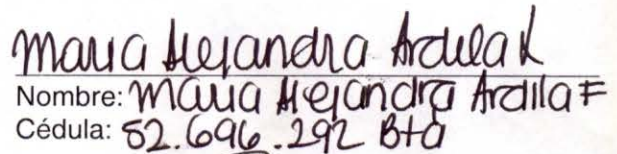 Maria Alejandra Ardila F
Nombre: Maria Alejandra Ardila F
Cédula: 52.696.292 Bta